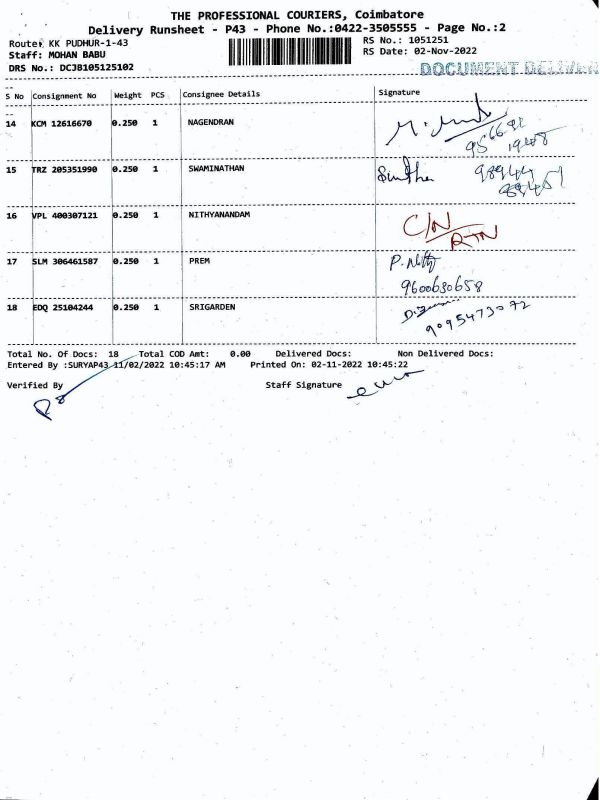 THE PROFESSIONAL COURIERS, Coimbatore
Delivery Runsheet - P43 - Phone No.:0422-3505555 - Page No.:2
Route: KK PUDHUR-1-43 RS No.: 1051251
Staff: MOHAN BABU RS Date: 02-Nov-2022
DRS No.: DCJB105125102 DOCUMENT DELIVER
S No Consignment No Weight PCS Consignee Details Signature
14 KCM 12616670 0.250 1 NAGENDRAN
15 TRZ 205351990 0.250 1 SWAMINATHAN
16 VPL 400307121 0.250 1 NITHYANANDAM C/N
RTN
17 SLM 306461587 0.250 1 PREM
9600630658
18 EDQ 25104244 0.250 1 SRIGARDEN
9095473072
Total No. Of Docs: 18 Total COD Amt: 0.00 Delivered Docs: Non Delivered Docs:
Entered By :SURYAP43 11/02/2022 10:45:17 AM Printed On: 02-11-2022 10:45:22
Verified By Staff Signature